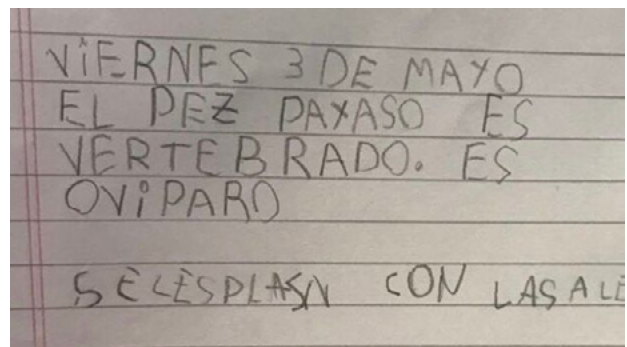 ViERNES 3 DE MAYO
EL PEZ PAYASO ES
VERTEBRADO. ES
OViPARO
CON LAS ALE